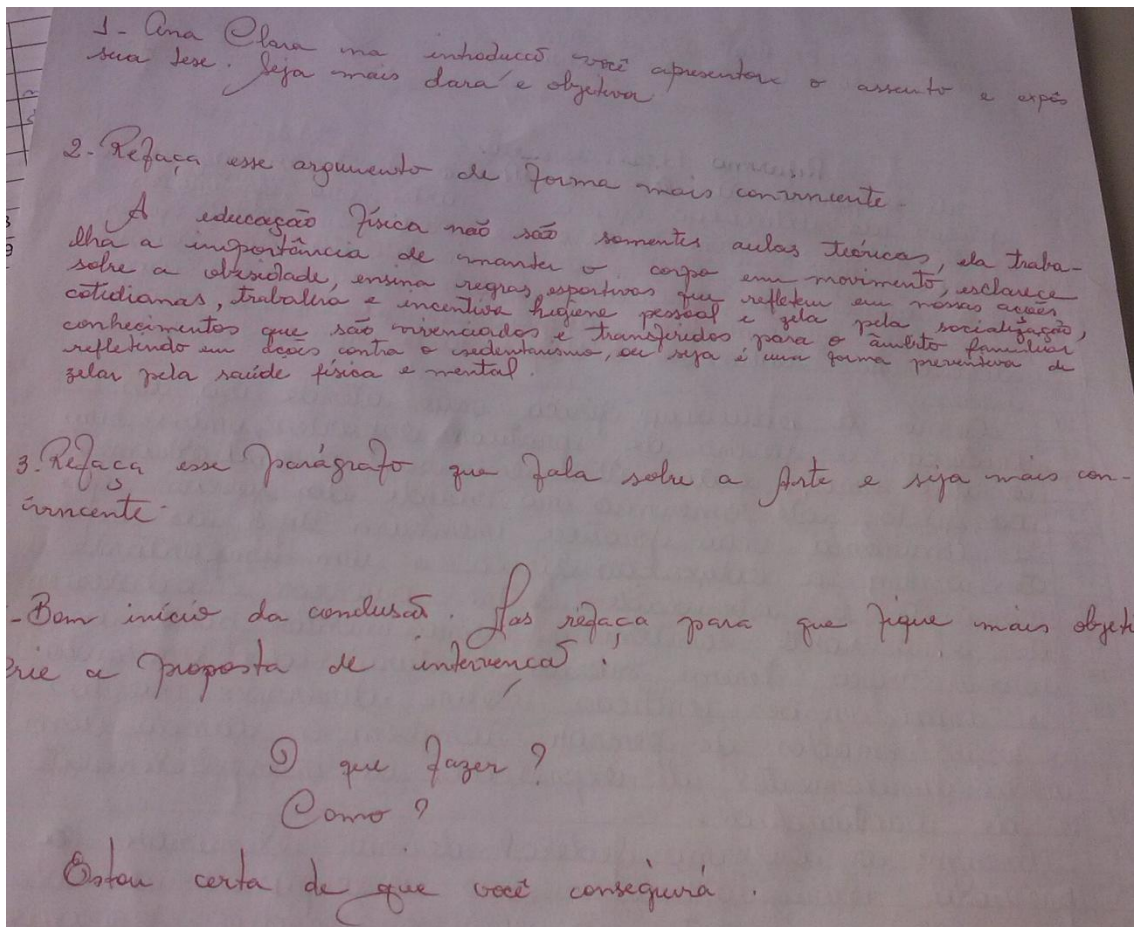 1- Ana Clara na introduccõ você apresentou o assunto e expôs
sua tese. Seja mais clara e objetiva
2- Refaça esse argumento de forma mais convincente.
A educação física não são somentes aulas teóricas, ela traba-
lha a importância de manter o corpo em movimento, esclarece
sobre a obesidade, ensina regras esportivas que refletem em nossas ações
cotidianas, trabalha e incentiva higiene pessoal e zela pela socialização,
conhecimentos que são vivenciados e transferidos para o âmbito familiar
refletindo em ações contra o sedentarismo, ou seja é uma forma preventiva de
zelar pela saúde física e mental.
3. Refaça esse parágrafo que fala sobre a Arte e seja mais con-
vincente.
-Bom início da conclusão. Mas refaça para que fique mais objeti
crie a proposta de intervenção.
O que fazer?
Como?
Estou certa de que você conseguirá.